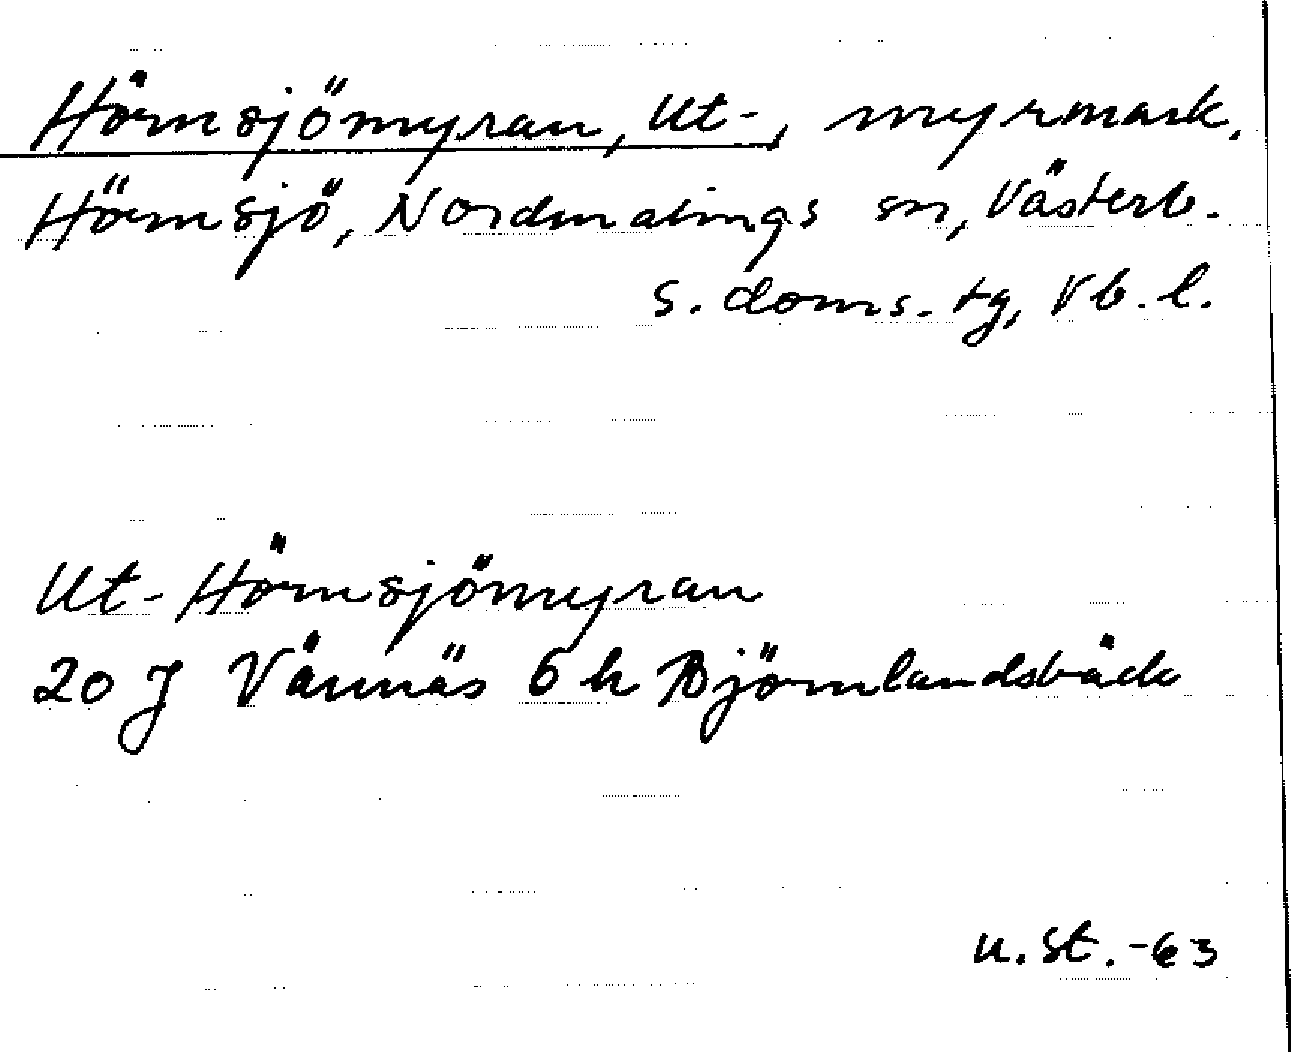 Hörnsjömyran, Ut-, myrmark,
Hörnsjö, Nordmalings sn, Västerb.
s. doms. tg, Vb. l.
Ut-Hörnsjömyran
20 J Vännäs 6 h Björnlandsbäck
u. St. -63